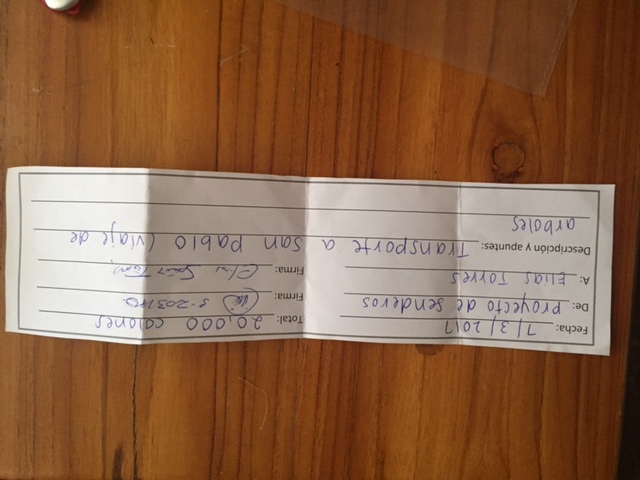 Fecha: 7/3/2017 Total: 20,000 colones
De: proyecto de senderos Firma:
A: Elias Torres Firma:
Descripción y apuntes: Transporte a san pablo (viaje de
arboles